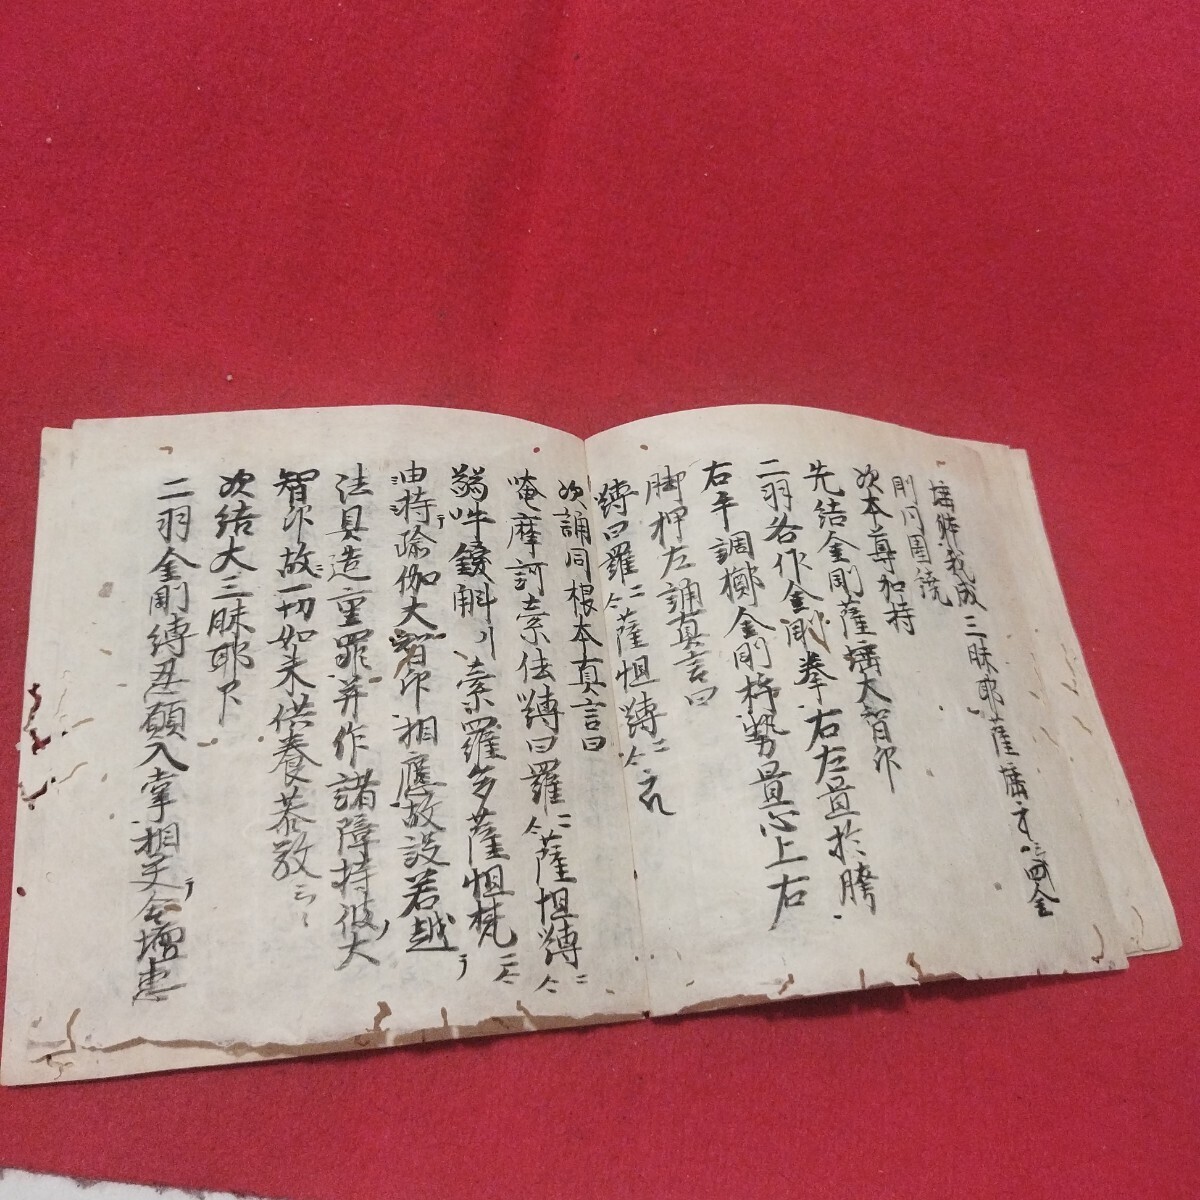 我成三昧耶薩埵
則同囲繞
次本尊加持
先結金剛薩埵大智印
二羽各作金剛拳右左置於胯
右手調擲金剛杵勢置心上右
脚押左誦真言曰
縛曰羅二合薩怛縛二合
次誦同根本真言曰
唵摩訶素佉縛曰羅二合薩怛縛二合
弱吽鑁斛素羅多薩怛梵二合
由持瑜伽大智印相應故設若越
法具造重罪并作諸障持彼大
智印故一切如来供養恭敬云々
次結大三昧耶印
二羽金剛縛忍願入掌相交合壇恵